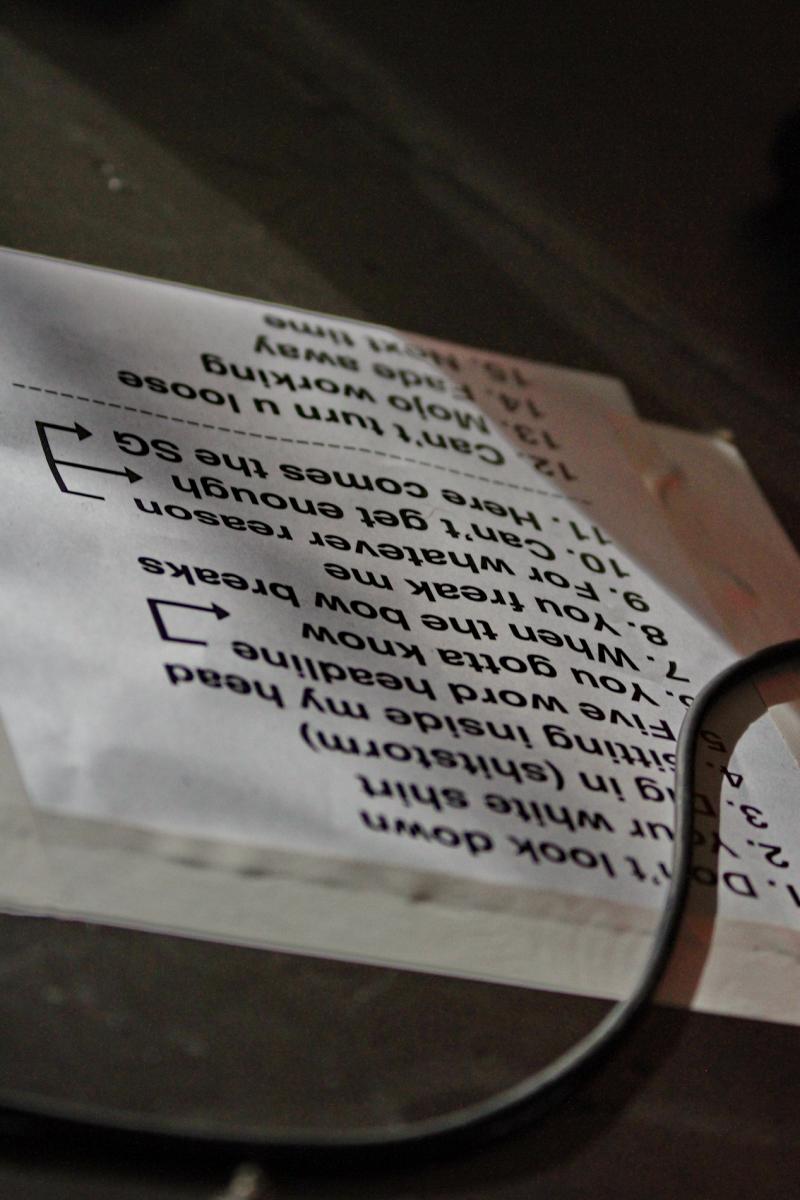 1. Don't look down
2. Your white shirt
3. in (shitstorm)
4. Sitting inside my head
5. Five word headline
6. You gotta know
7. When the bow breaks
8. You freak me
9. For whatever reason
10. Can't get enough
11. Here comes the SG
12. Can't turn u loose
13. Mojo working
14. Fade away
15. Next time